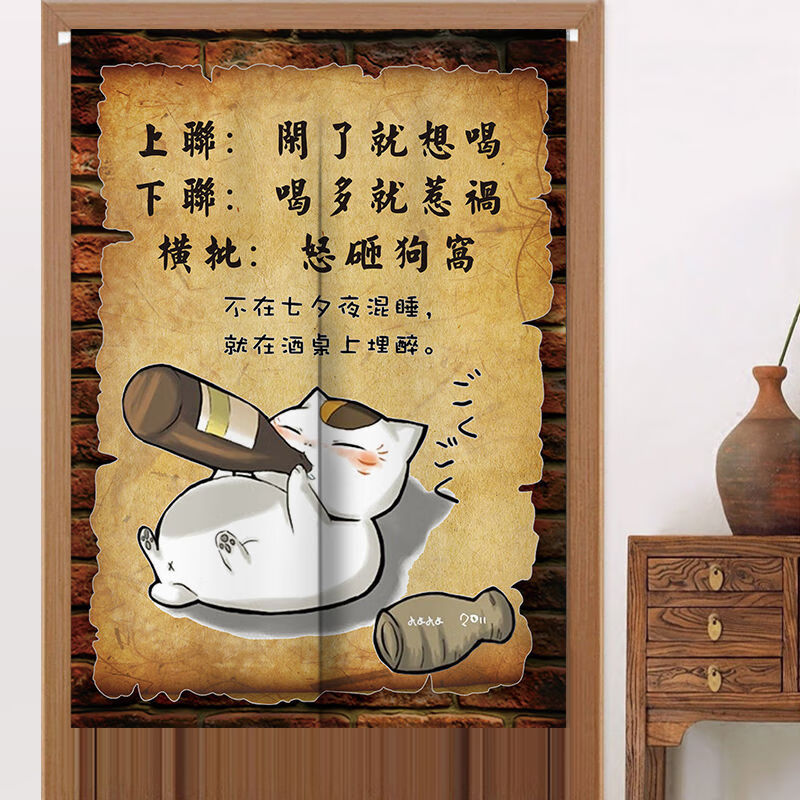 上聯：閑了就想喝
下聯：喝多就惹禍
橫批：怒砸狗窩
不在七夕夜混睡，
就在酒桌上埋醉。
ごくごく
2011